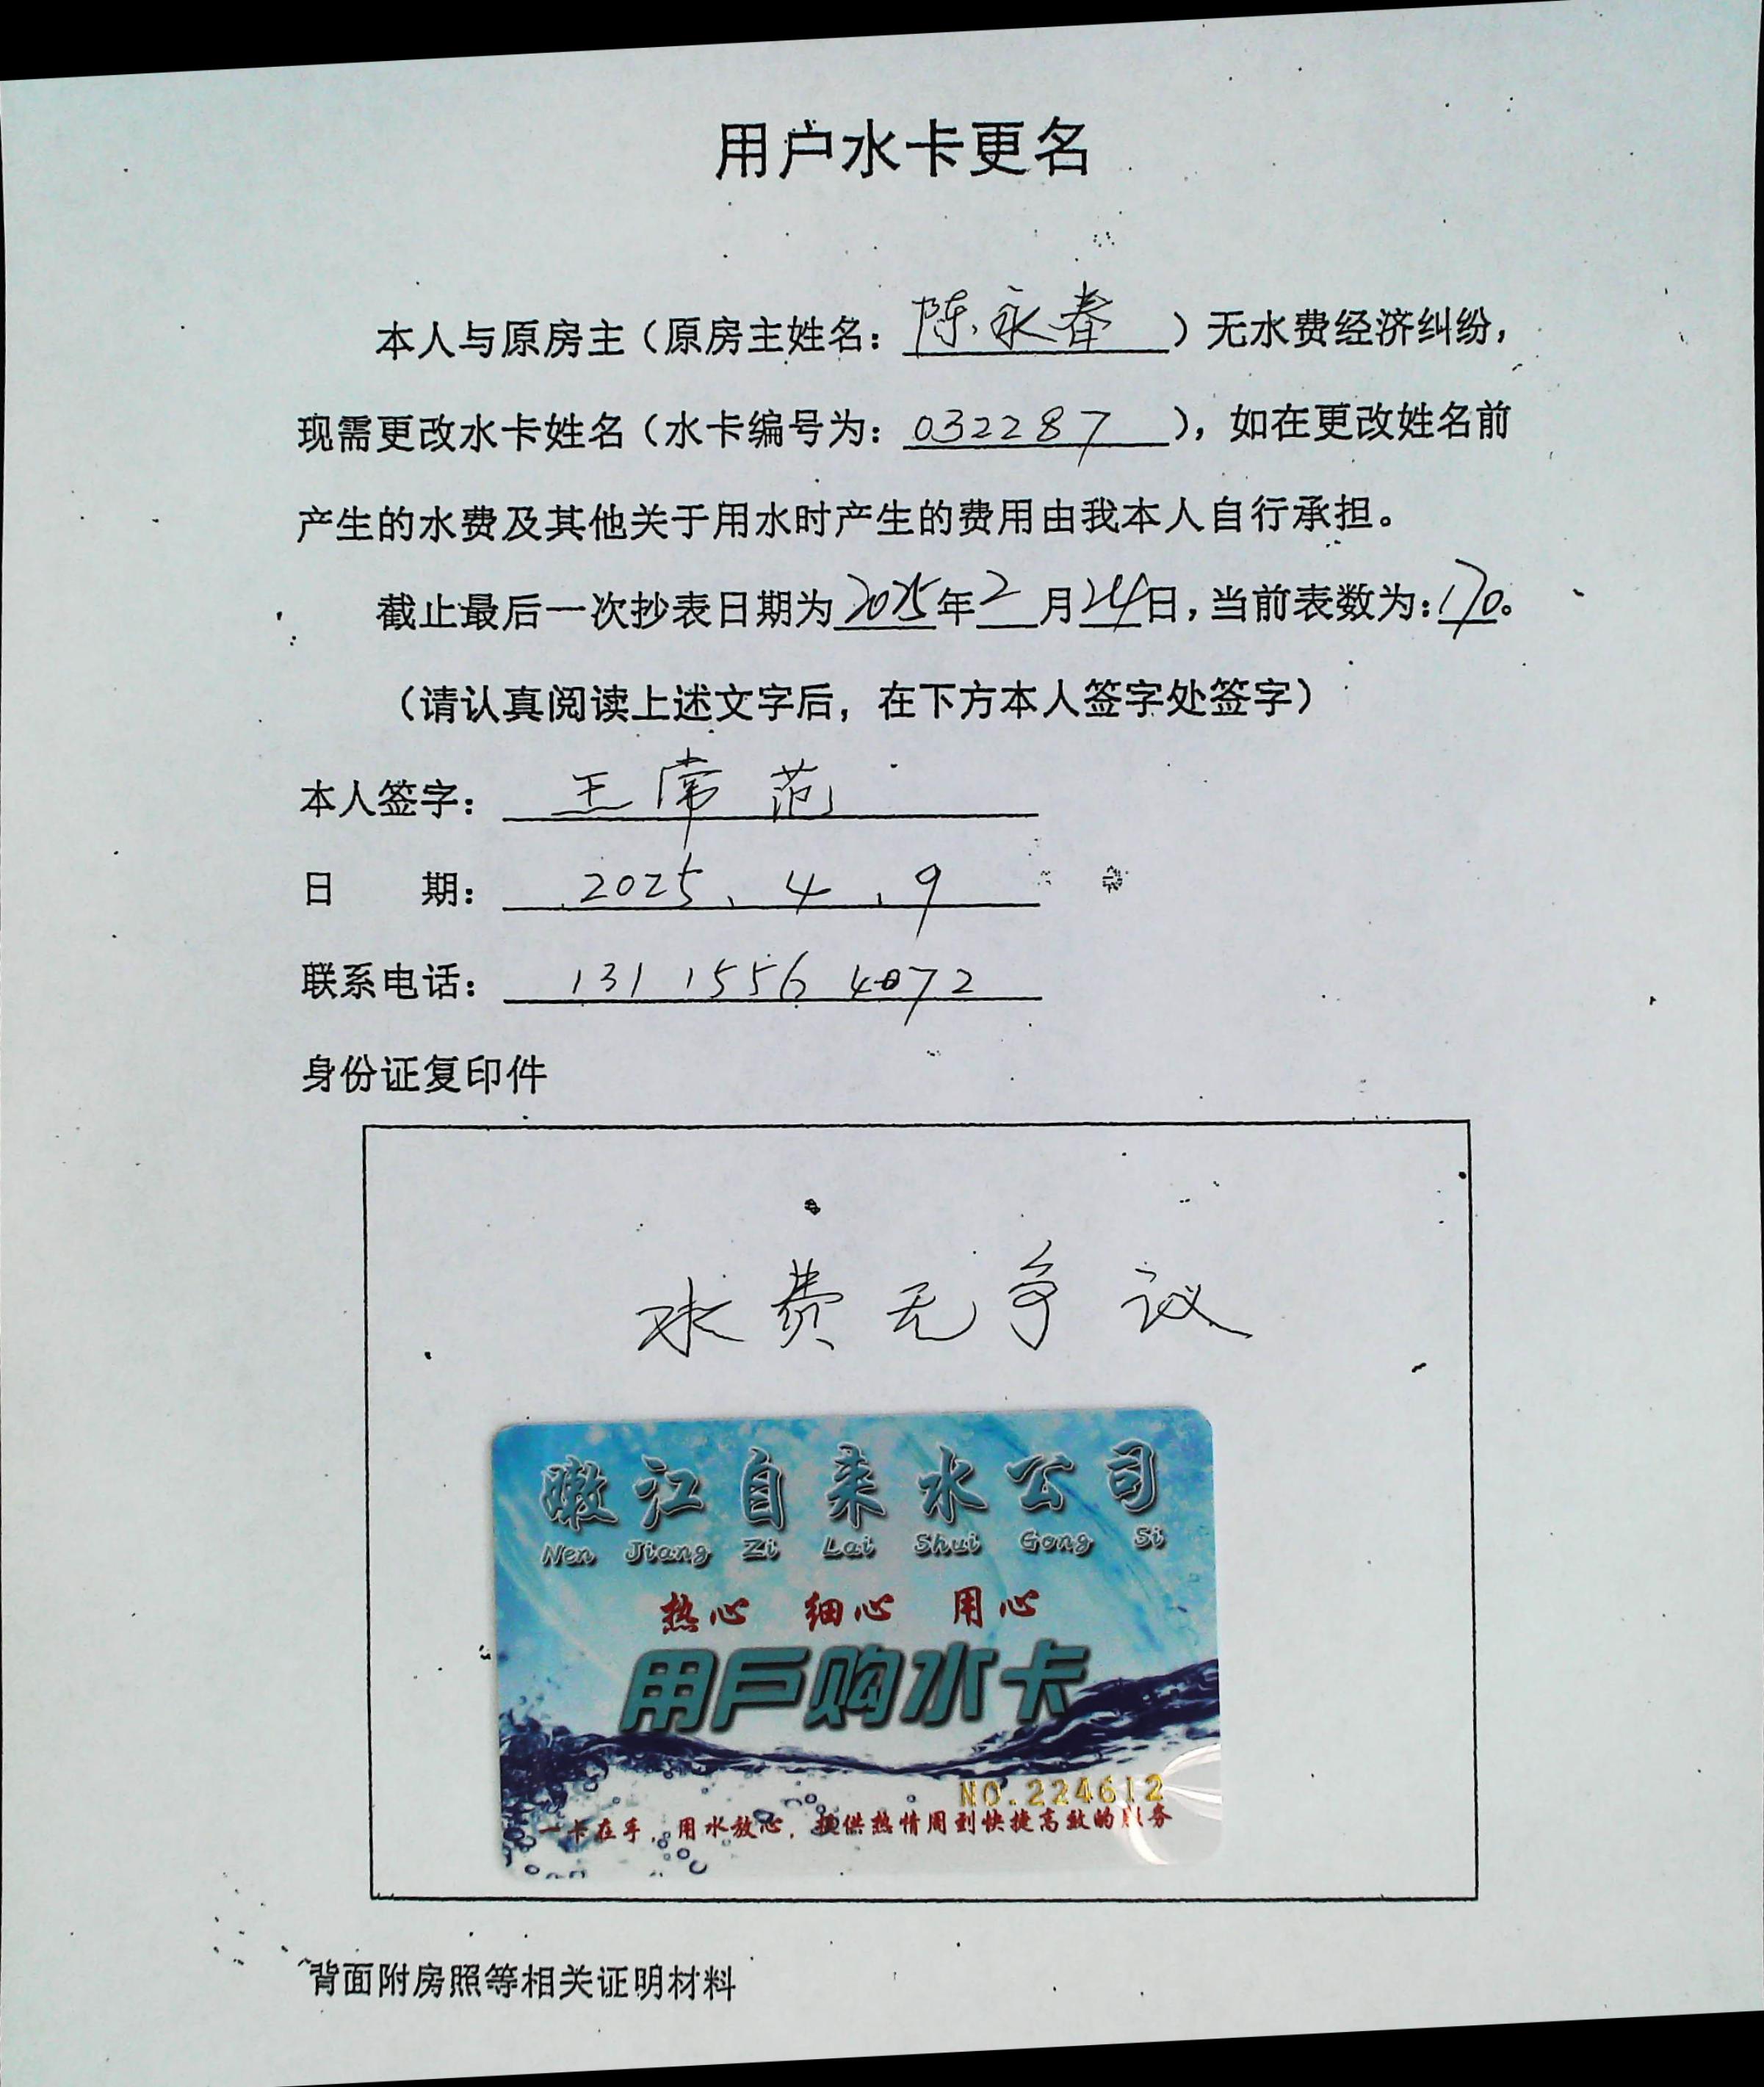 用户水卡更名
本人与原房主（原房主姓名：陈永春）无水费经济纠纷，
现需更改水卡姓名（水卡编号为：032287），如在更改姓名前
产生的水费及其他关于用水时产生的费用由我本人自行承担。
截止最后一次抄表日期为2025年2月24日，当前表数为：170。
（请认真阅读上述文字后，在下方本人签字处签字）
本人签字：王常范
日　期：2025、4、9
联系电话：131 1556 4072
身份证复印件
水费无争议
嫩江自来水公司
Nen Jiang Zi Lai Shui Gong Si
热心 细心 用心
用户购水卡
NO.224612
一卡在手，用水放心，提供热情周到快捷高效的服务
背面附房照等相关证明材料